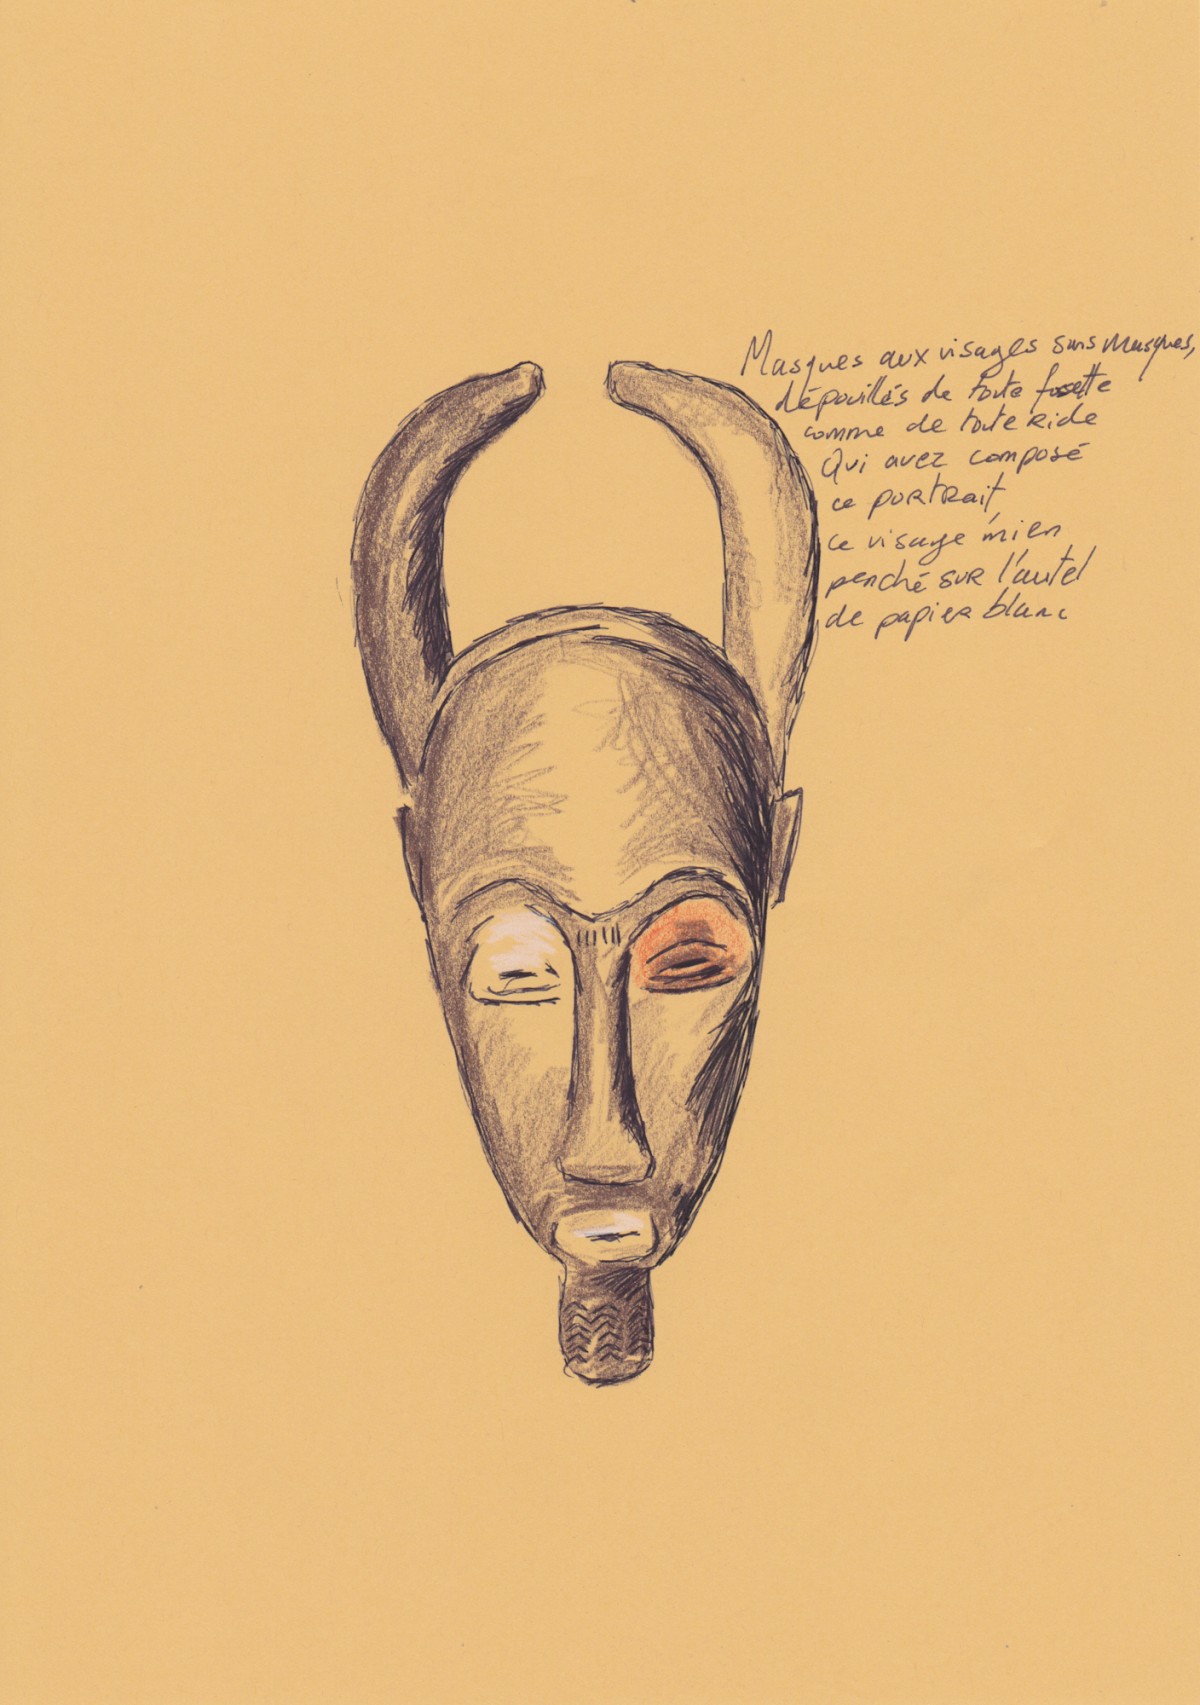 Masques aux visages sans masques,
dépouillés de toute fossette
comme de toute ride
Qui avez composé
ce portrait,
ce visage mien
penché sur l'autel
de papier blanc